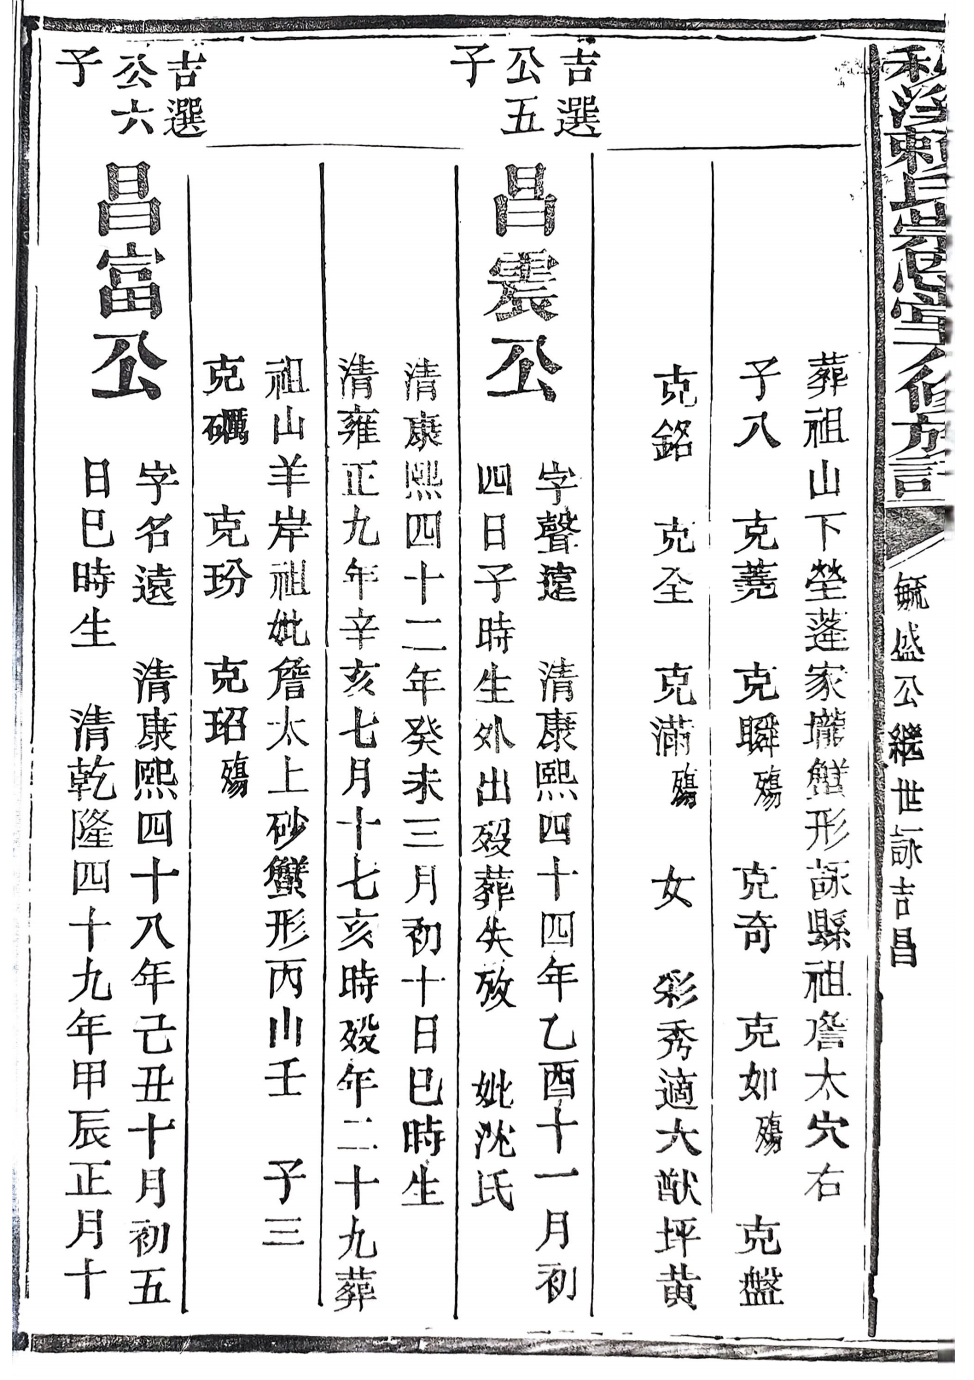 毓盛公繼世詠吉昌
葬祖山下塋蓬家壠蟹形詠縣祖詹太穴右
子八 克蕘 克瞬殤 克奇 克如殤 克盤
克銘 克全 克滿殤 女 彩秀適大猷坪黄
吉選
公五
子
昌震公
字聲遠 清康熙四十四年乙酉十一月初
四日子時生外出殁葬失攷 妣沈氏
清康熙四十二年癸未三月初十日巳時生
清雍正九年辛亥七月十七亥時殁年二十九葬
祖山羊岸祖妣詹太上砂蟹形丙山壬 子三
克礪 克玢 克玿殤
吉選
公六
子
昌富公
字名遠 清康熙四十八年己丑十月初五
日巳時生 清乾隆四十九年甲辰正月十